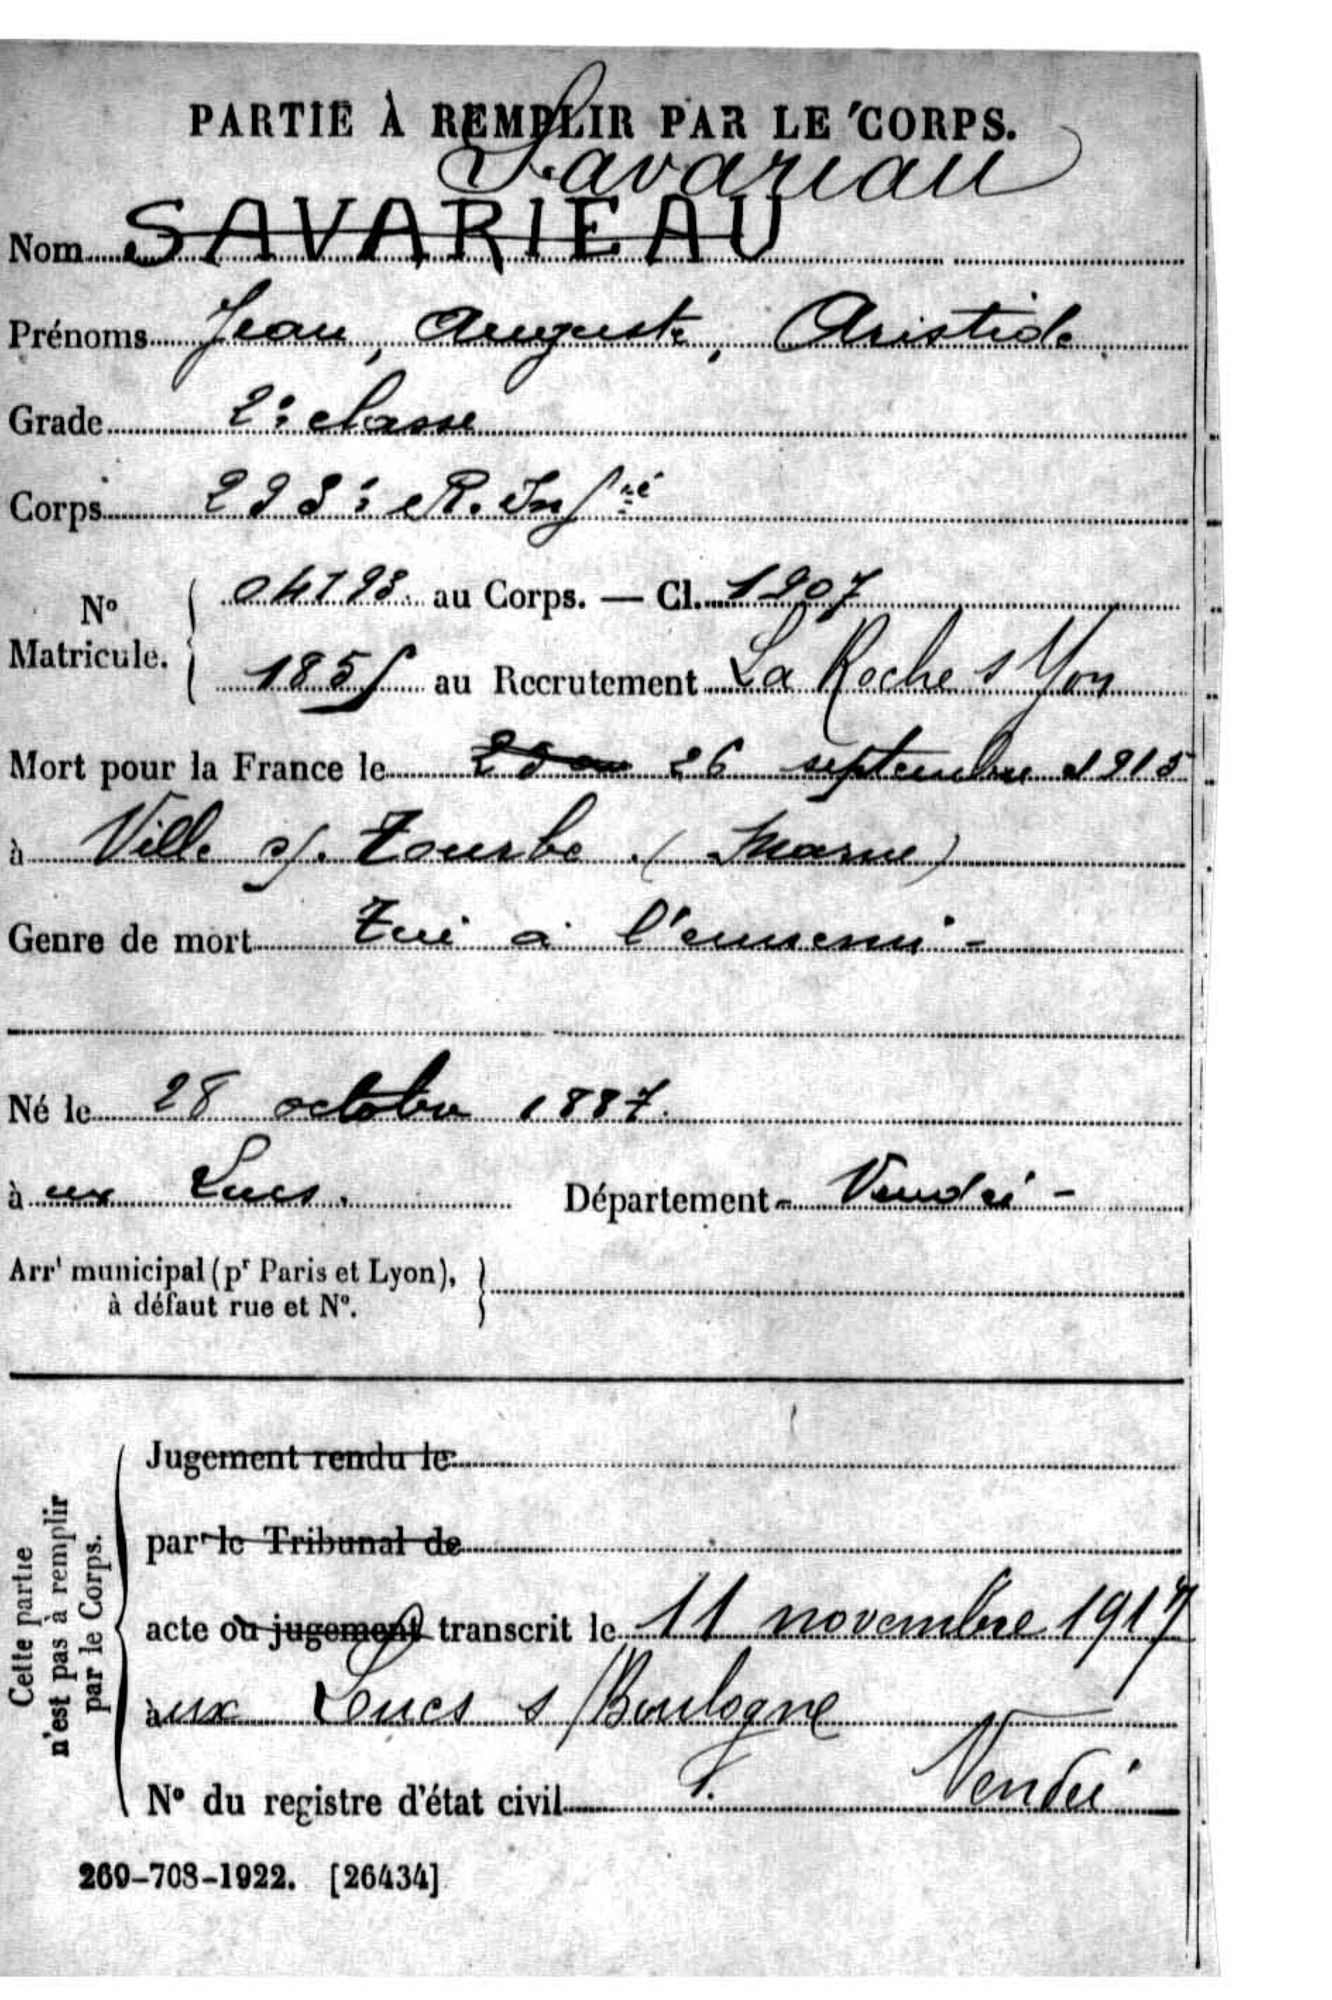 PARTIE À REMPLIR PAR LE CORPS.
Savariau
Nom SAVARIEAU
Prénoms Jean, Auguste, Aristide
Grade 2e classe
Corps 293e R. Infie
N° Matricule. 04793 au Corps. — Cl. 1907
185 au Recrutement La Roche s/Yon
Mort pour la France le 26 septembre 1915
à Ville s/. Tourbe (Marne)
Genre de mort Tué à l'ennemi -
Né le 28 octobre 1887.
à ux Lucs. Département - Vendée -
Arrt municipal (pr Paris et Lyon),
à défaut rue et N°.
Cette partie
n'est pas à remplir
par le Corps.
Jugement rendu le
par le Tribunal de
acte ou jugement transcrit le 11 novembre 1917
àux Lucs s/Boulogne
Vendée
N° du registre d'état civil
269-708-1922. [26434]